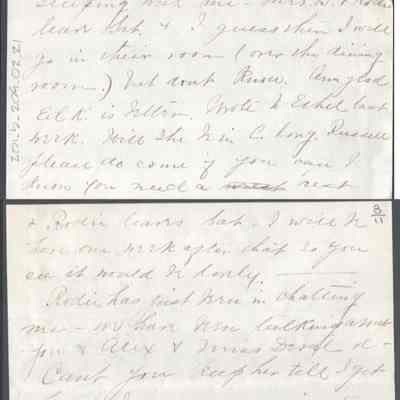 sleeping with me - Mrs. W. & Rodie
leave Sat. & I guess then I will
go in their room (over the dining
room.) but dont know. Am glad
Ed K. is better. Wrote to Ethel last
week. Will she be in C. long. Russell
please do come if you can I
know you need a rest
2015.209.0221
& Rodie leaves Sat. I will be
here one week after that so you
see it would be lovely
Rodie has just been in chatting
me - we have been talking about
you & Alex & Miss
Cant you keep her till I get
8/11